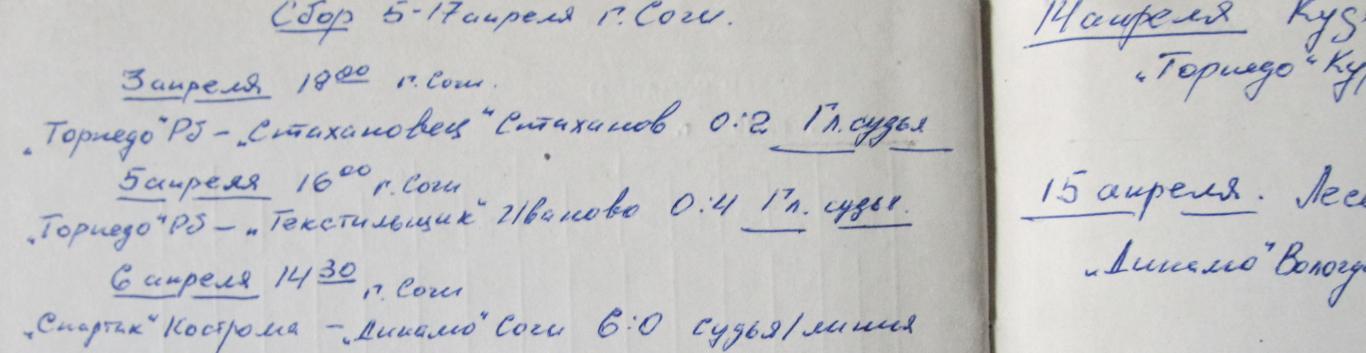 Сбор 5-17 апреля г. Сочи.
3 апреля 18⁰⁰ г. Сочи.
„Торпедо" Рб – „Стахановец" Стаханов 0:2 Гл. судья
5 апреля 16⁰⁰ г. Сочи
„Торпедо" Рб – „Текстильщик" Иваново 0:4 Гл. судья.
6 апреля 14³⁰ г. Сочи
„Спартак" Кострома – „Динамо" Сочи 6:0 судья/линия
14 апреля
„Торпедо"
15 апреля.
„Динамо"